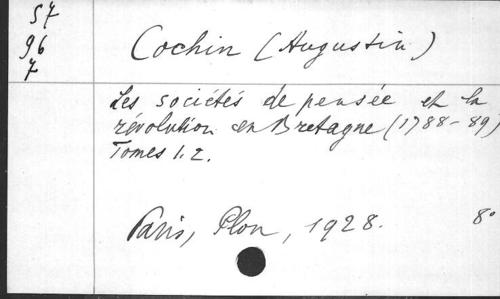 57
96
7
Cochin (Augustin)
Les sociétés de pensée et la
révolution en Bretagne (1788-89)
Tomes 1.2.
Paris, Plon, 1928. 8°